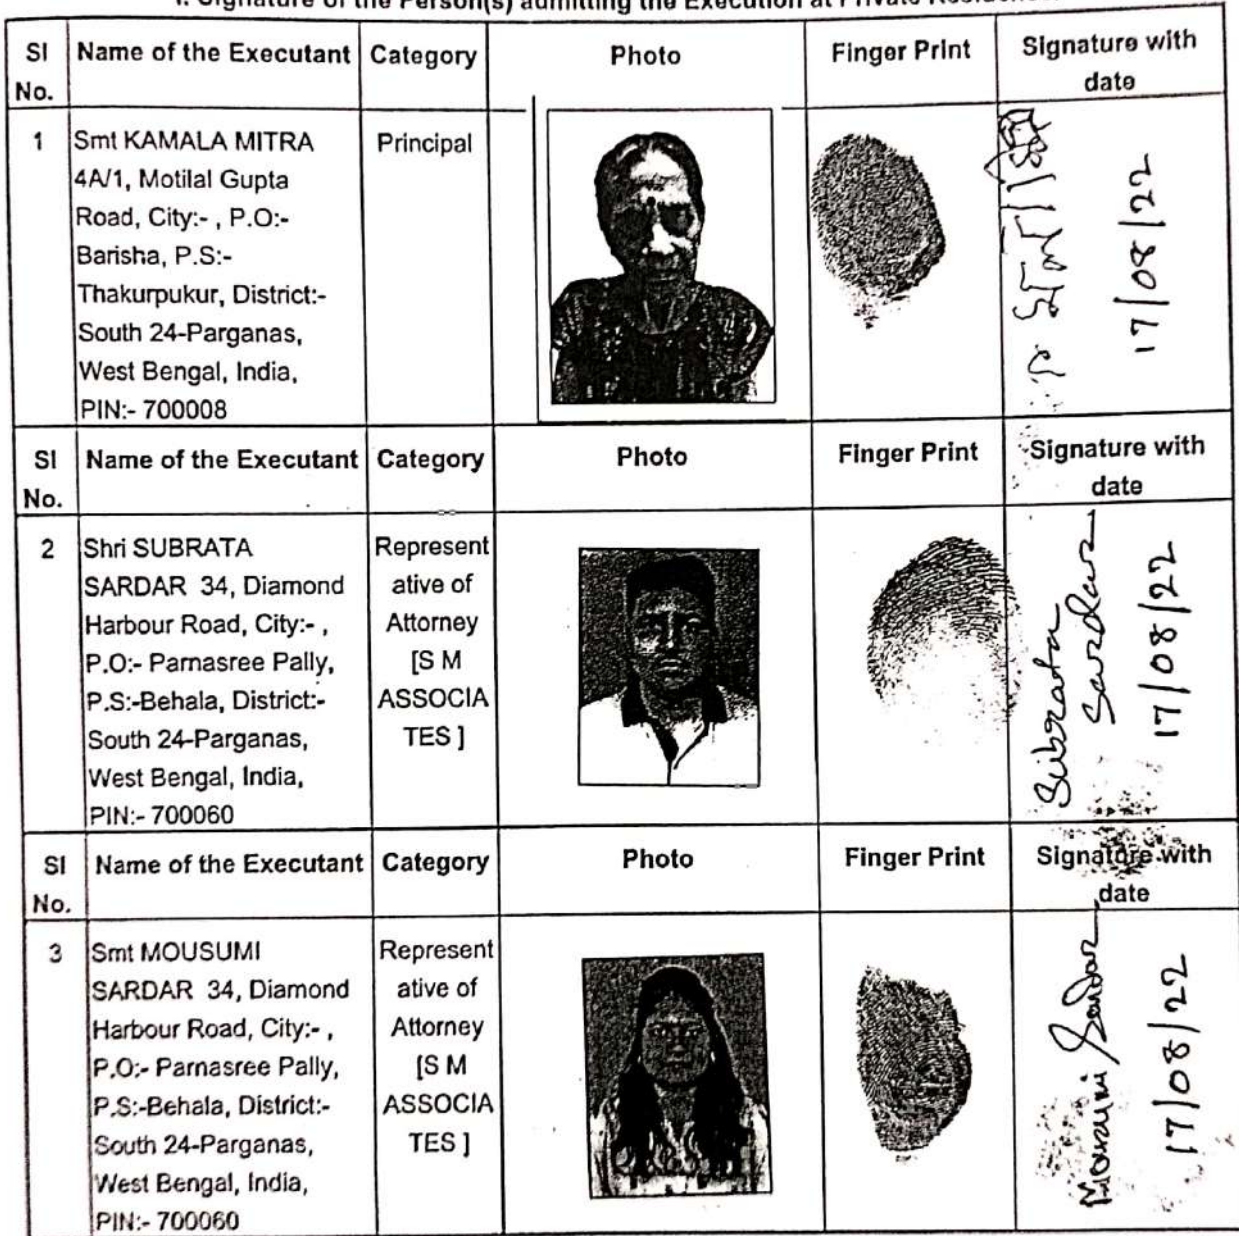 I. Signature of the Person(s) admitting the Execution at Private Residence.
Sl No. | Name of the Executant | Category | Photo | Finger Print | Signature with date
1
Smt KAMALA MITRA
4A/1, Motilal Gupta
Road, City:- , P.O:-
Barisha, P.S:-
Thakurpukur, District:-
South 24-Parganas,
West Bengal, India,
PIN:- 700008
Principal
17/08/22
Sl No. | Name of the Executant | Category | Photo | Finger Print | Signature with date
2
Shri SUBRATA
SARDAR 34, Diamond
Harbour Road, City:- ,
P.O:- Parnasree Pally,
P.S:-Behala, District:-
South 24-Parganas,
West Bengal, India,
PIN:- 700060
Represent
ative of
Attorney
[S M
ASSOCIA
TES ]
Subrata
Sardar
17/08/22
Sl No. | Name of the Executant | Category | Photo | Finger Print | Signature with date
3
Smt MOUSUMI
SARDAR 34, Diamond
Harbour Road, City:- ,
P.O:- Parnasree Pally,
P.S:-Behala, District:-
South 24-Parganas,
West Bengal, India,
PIN:- 700060
Represent
ative of
Attorney
[S M
ASSOCIA
TES ]
Mousumi Sardar
17/08/22